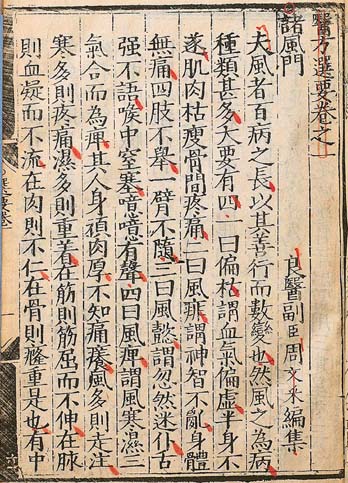 醫方選要卷之一
諸風門　良醫副臣周文采編集
夫風者百病之長以其善行而數變也然風之為病
種類甚多大要有四一曰偏枯謂血氣偏虛半身不
遂肌肉枯瘦骨間疼痛二曰風痱謂神智不亂身體
無痛四肢不舉一臂不隨三曰風懿謂忽然迷仆舌
强不語喉中窒塞噫噫有聲四曰風痺謂風寒濕三
氣合而為痺其人身頑肉厚不知痛癢風多則走注
寒多則疼痛濕多則重着在筋則筋屈而不伸在脉
則血凝而不流在肉則不仁在骨則癃重是也有中